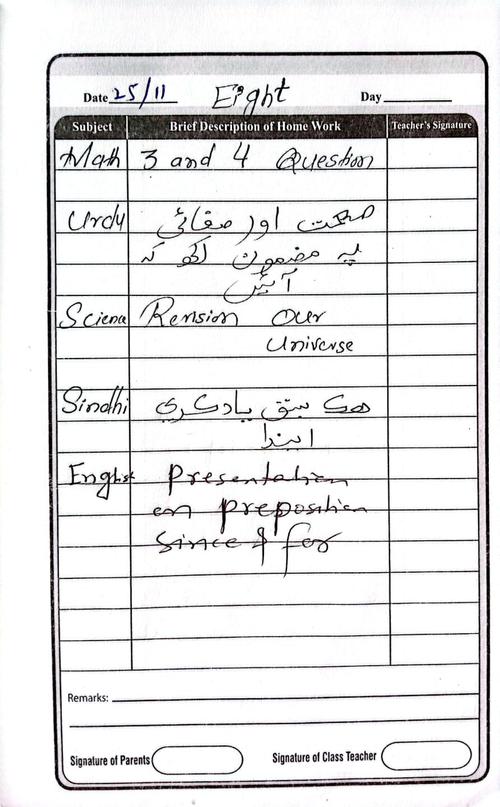 Date 25/11 Eight Day
Subject Brief Description of Home Work Teacher's Signature
Math 3 and 4 Question
Urdu صحت اور صفائی
پہ مضمون لکھ کہ
آئیں
Science Revision Our
Universe
Sindhi هڪ سبق ياد ڪري
ايندا
English Presentation
on preposition
since & for
Remarks:
Signature of Parents Signature of Class Teacher